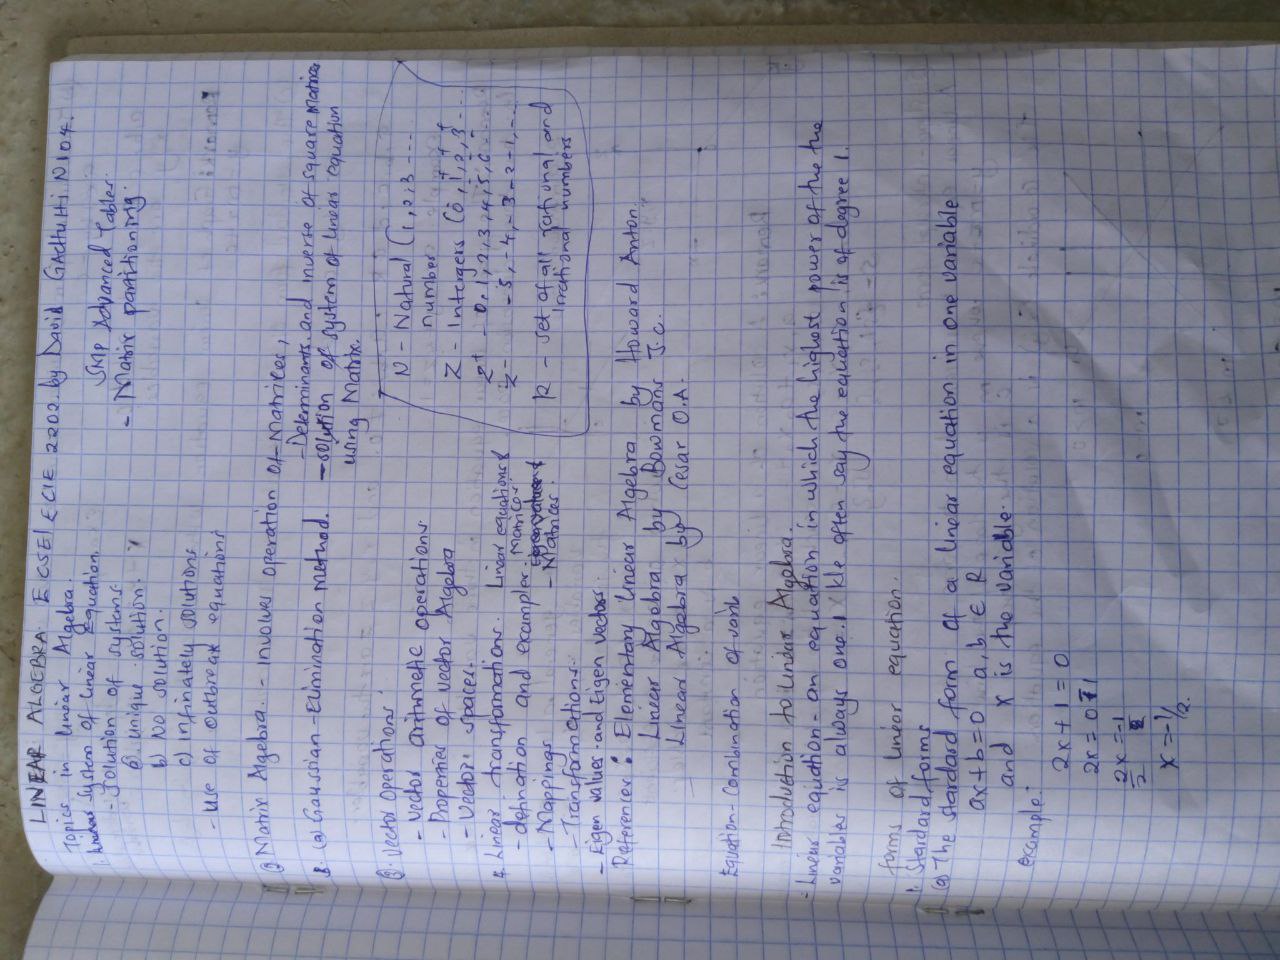 LINEAR ALGEBRA. ECSE/ECIE 2202. by David GACHUHI N104.
Topics in linear Algebra.
1. System of linear Equation.
- Solution of systems
a. unique solution.
b) No solution.
c) Infinately solutions
- use of outbreak equations
SMP Advanced Tables.
- Matrix partitioning.
② Matrix Algebra. - Involves operation of Matrices,
- Determinants. and inverse of square matrices
(a) Gaussian - Elimination method. - solution of system of linear equation
using Matrix.
③. Vector operations:
- Vector arithmetic operations.
- Properties of vector Algebra
- Vector spaces.
4. Linear transformations. Linear equations &
- defination and examples. Matrices.
- Mappings - Matrices.
- Transformations.
- Eigen values and Eigen vectors.
N - Natural (1, 2, 3 ---
numbers
Z - Intergers (0, ±1, ±2, ±3 ---
Z+ - 0, 1, 2, 3, 4, 5, 6 ---
Z- -5, -4, -3 -2 -1, ---
R - set of all rational and
Irrational numbers
References: Elementary Linear Algebra by Howard Anton.
Linear Algebra by Bowmans J.c.
Linear Algebra by Cesar O.A.
Equation - Combination of varib
Introduction to Linear Algebra.
- Linear equation - an equation in which the highest power of the the
variables is always one. 1 We often say the equation is of degree 1.
forms of linear equation.
1. Stardard forms
(a) The stardard form of a linear equation in one variable
ax + b = 0 a, b ∈ R
and x is the variable.
example:
2x + 1 = 0
2x = 0 - 1
2x/2 = -1/2
x = -1/2.